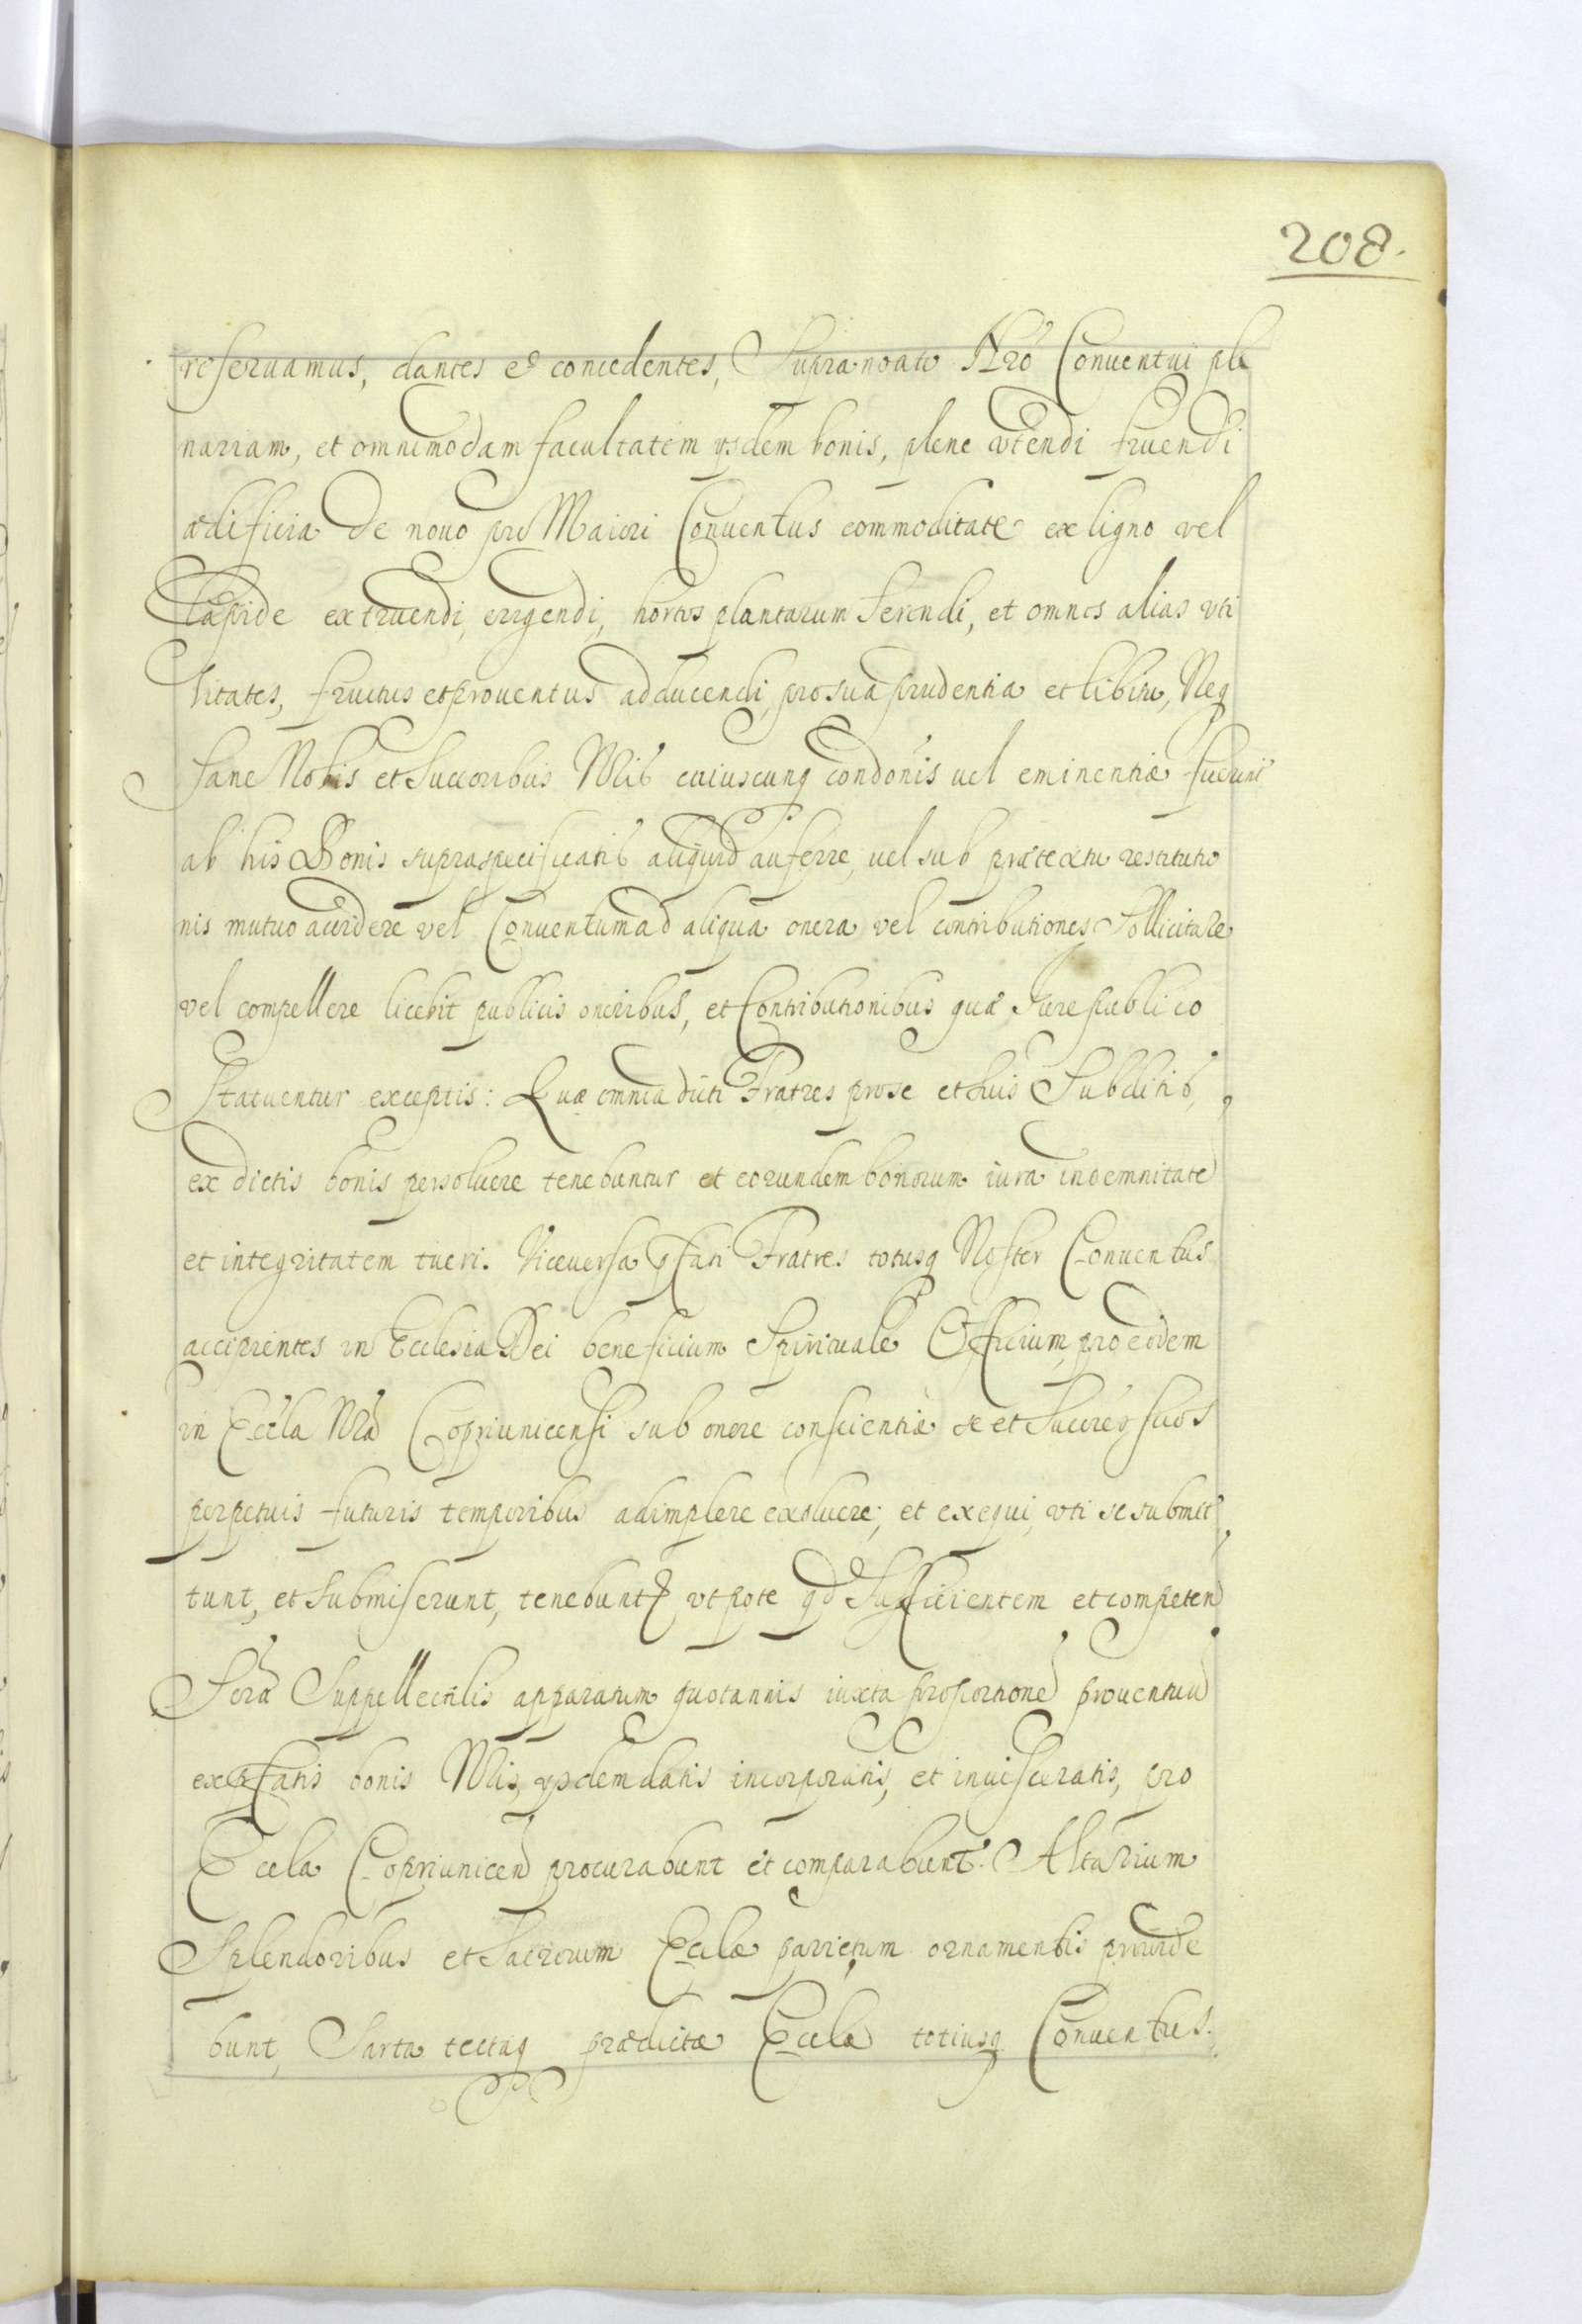 208.
reseruamus, dantes et concedentes, Supranoato Nrõ Conuentui ple
nariam, et omnimodam facultatem ysdem bonis, plene vtendi fruendi
ædificia de nouo pro Maiori Conuentus commoditate ex ligno vel
lapide extruendi, erigendi, hortos plantarum serendi, et omnes alias vti
litates, fructus et prouentus adducendi, pro sua prudentia et libitu, Neq
sane Nobis et Succoribus Nris cuiuscunq condonis uel eminentiæ fuerint
ab his Bonis supraspecificatis aliquid auferre, uel sub prætextu restitutio
nis mutuo accidere vel Conuentum ad aliqua onera vel contributiones Sollicitare
vel compellere licebit publicis oneribus, et Contributionibus quæ Jure publico
Statuentur exceptis: Quæ omnia dicti Fratres pro se et suis Subditis,
ex dictis bonis persoluere tenebuntur et eorundem bonorum iura indemnitate
et integritatem tueri. Viceversa pfati Fratres totusq Noster Conuentus
accipientes in Ecclesia Dei beneficium Spirituale Officium pro eodem
in Eccla Nra Coprivnicensi sub onere conscientiæ se et Succres suos
perpetuis futuris temporibus adimplere exoluere, et exequi, vti se submit
tunt, et submiserunt, tenebuntur vtpote qd Sufficientem et competen
Sera Suppellectilis apparatum quotannis iuxta proportione prouentuu
ex pfatis bonis Nris, ysdem datis incorporatis, et inuisceratis, pro
Eccla Coprivnicen procurabunt et comparabunt. Altarium
Splendoribus et Sacrorum Ecclæ parietum ornamentis prouide
bunt, Sarta tectaq prædictæ Ecclæ totiusq Conuentus.